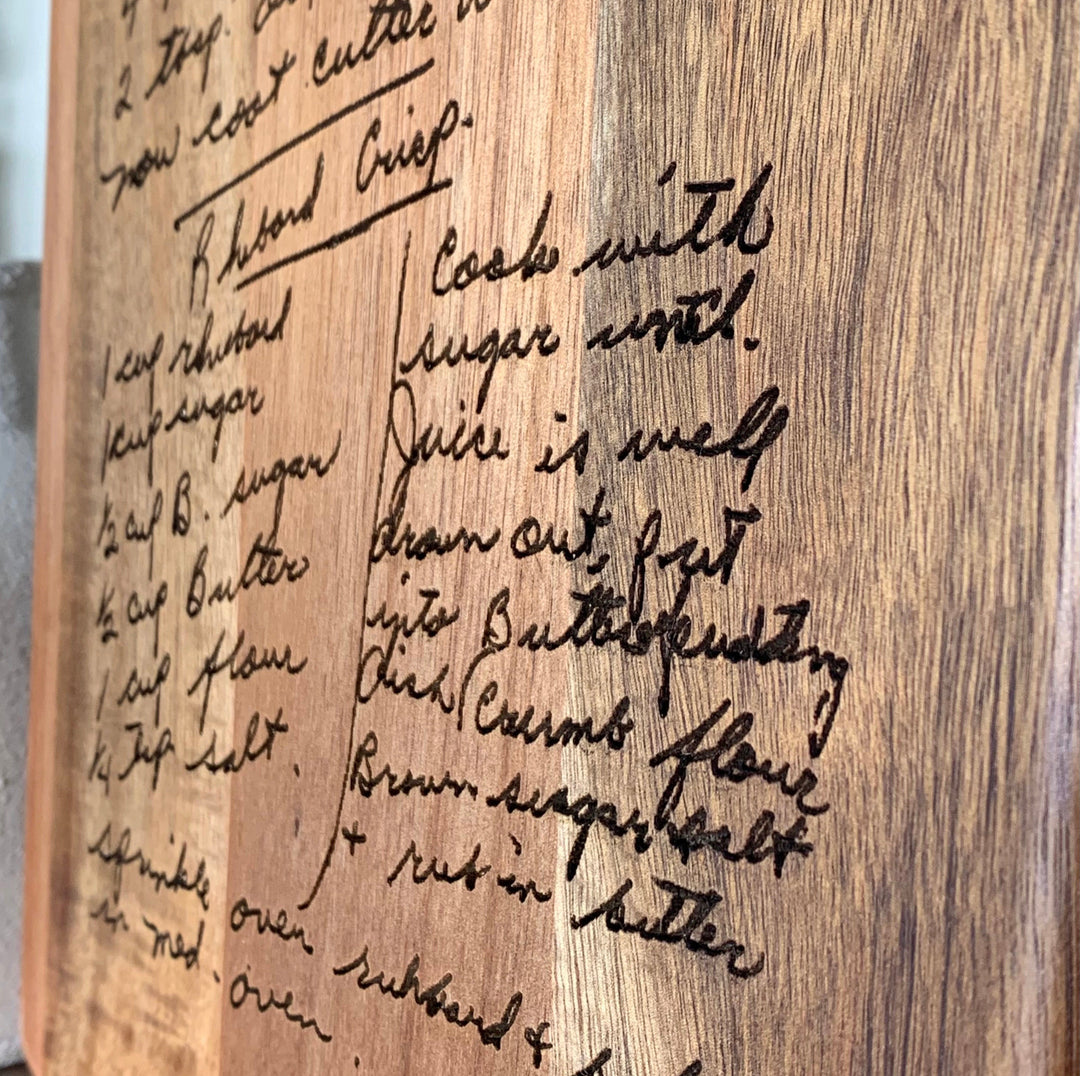 2 tbsp.
now coat cutter
Rhubard Crisp.
1 cup rhubard
1 cup sugar
1/2 cup B. sugar
1/2 cup Butter
1 cup flour
1/4 Tsp salt.
Cook with
sugar until.
Juice is well
drawn out, put
into Buttered pudding
dish (Crumb flour
Brown sugar, + salt
+ rub in butter
sprinkle over rubbard +
in med. oven.